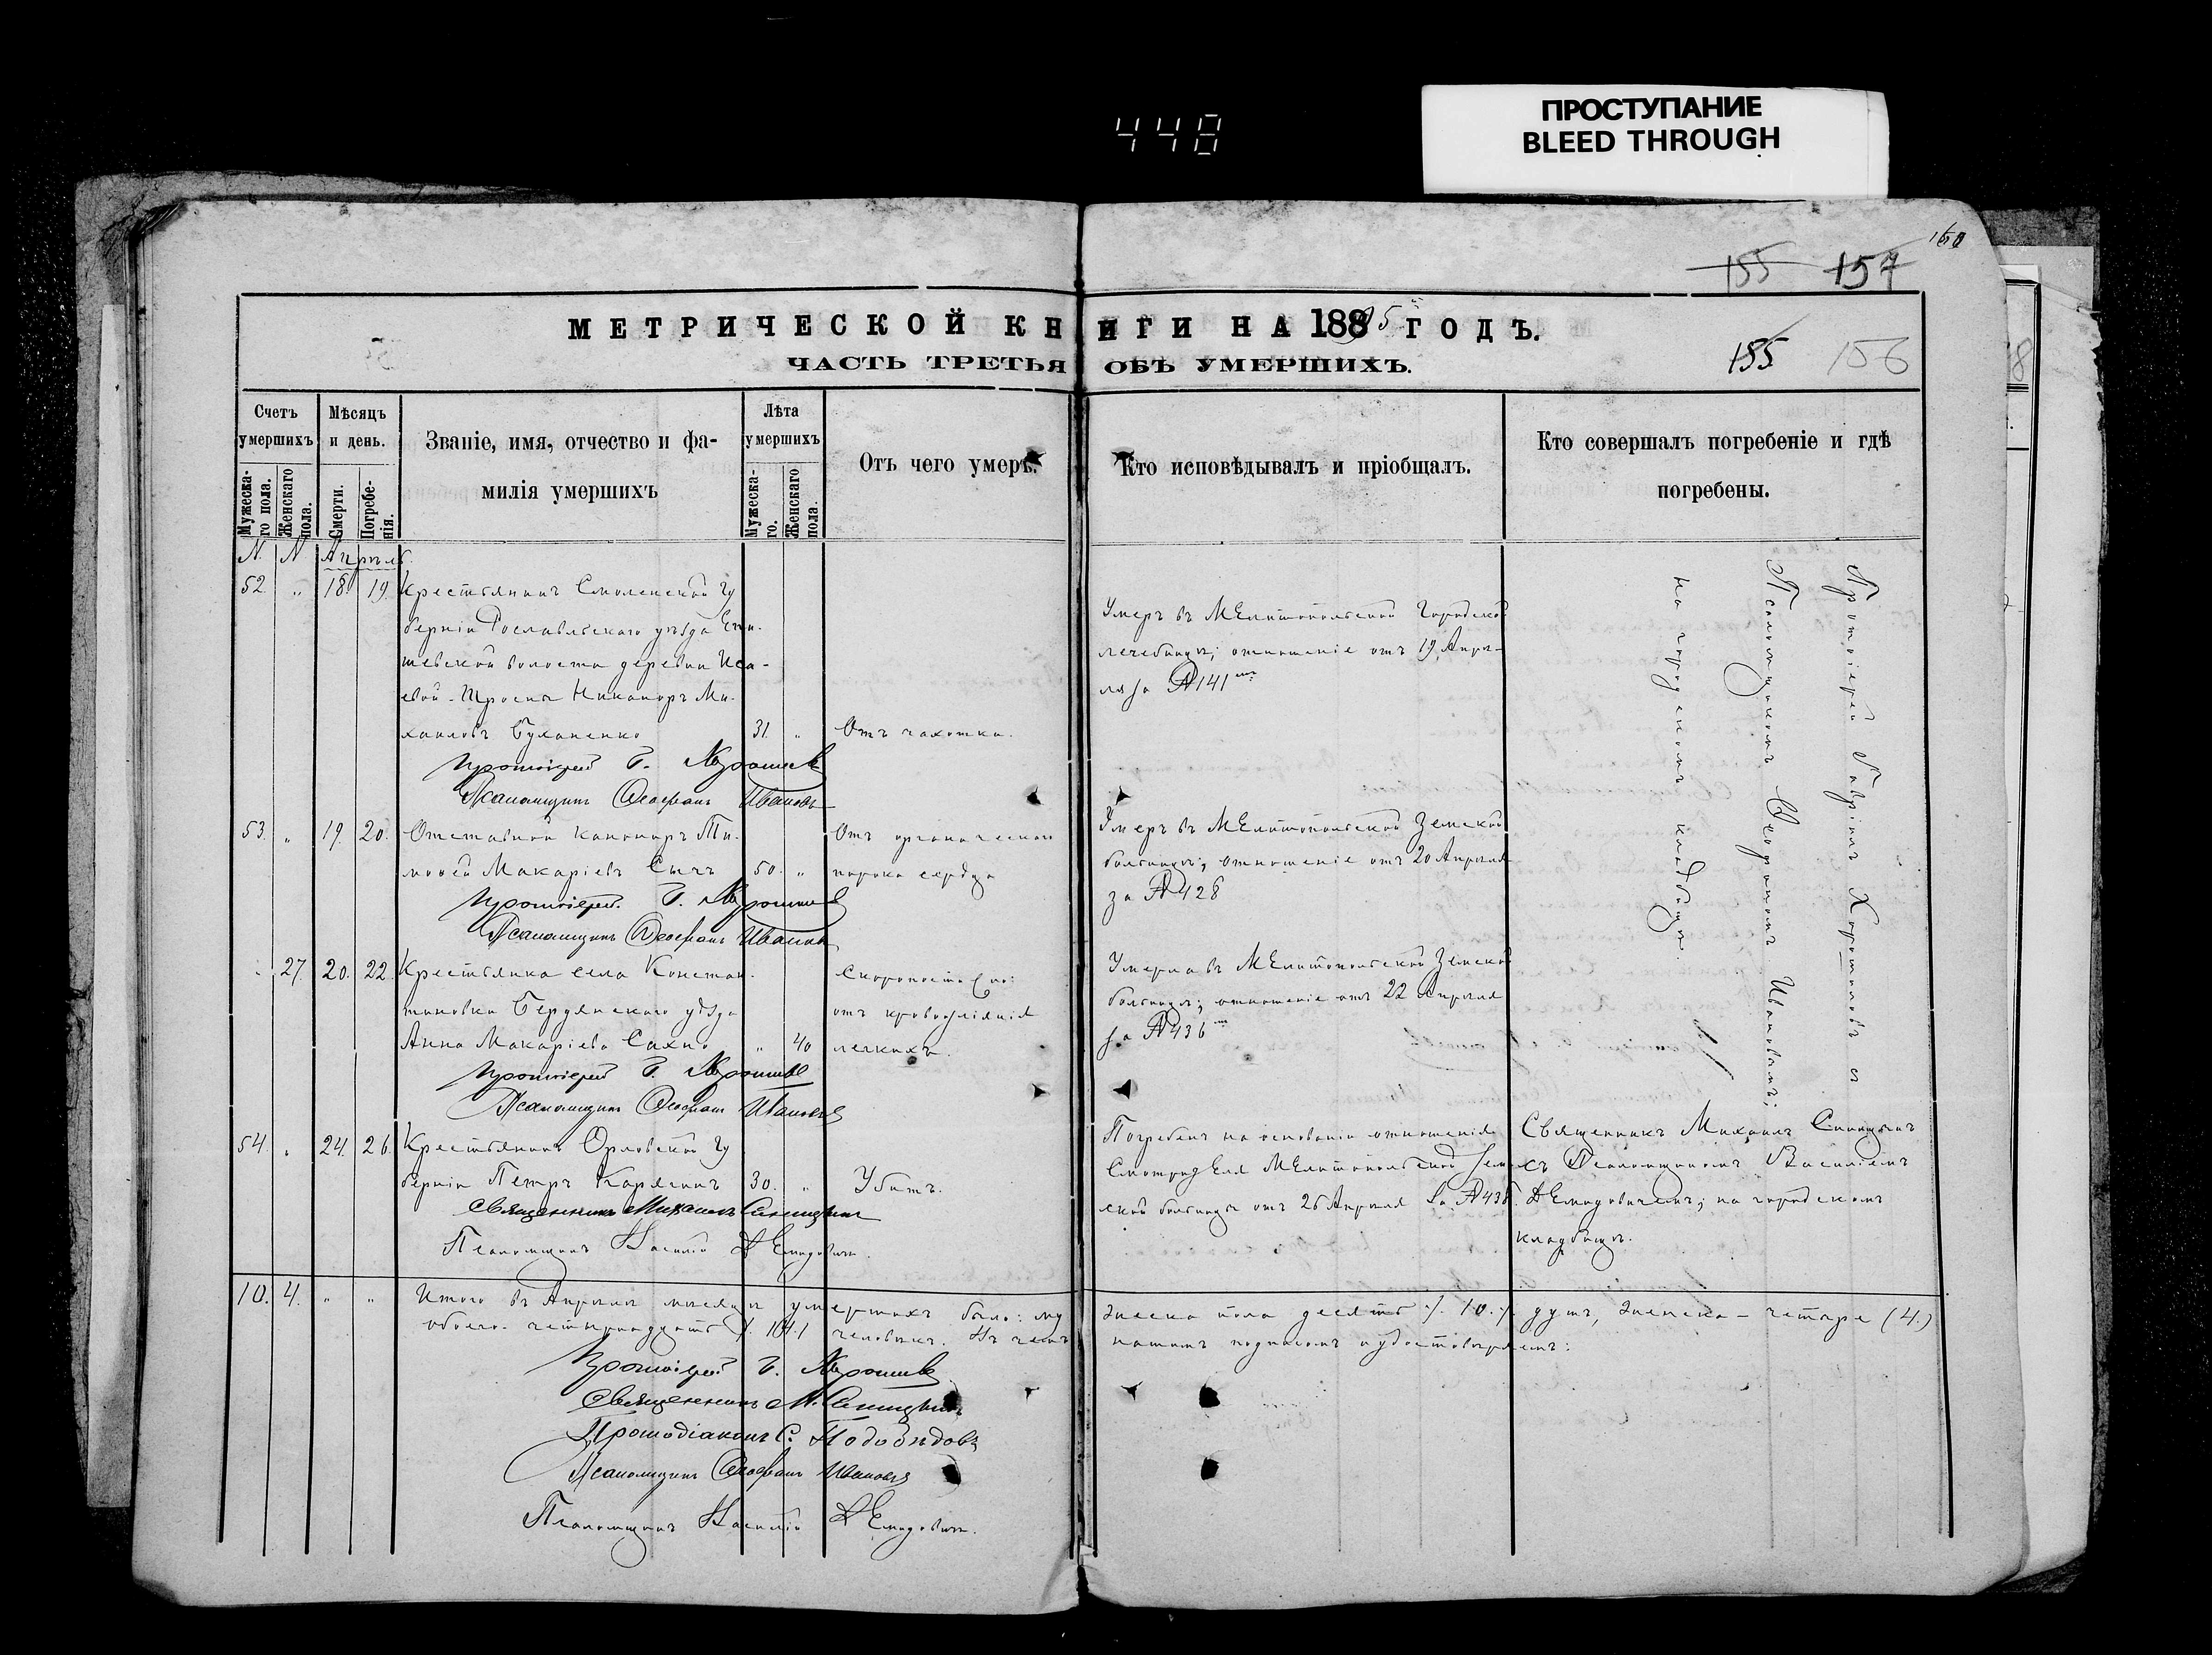 448
ПРОСТУПАНИЕ
BLEED THROUGH
160
155 157
МЕТРИЧЕСКОЙ КНИГИ НА 1885 ГОДЪ.
155 156
ЧАСТЬ ТРЕТЬЯ ОБЪ УМЕРШИХЪ.
Счетъ умершихъ
Мужеска-го пола.
Женскаго пола.
Мѣсяцъ и день.
Смерти.
Погребе-нія.
Званіе, имя, отчество и фа-
милія умершихъ
Лѣта умершихъ
Мужеска-го.
Женскаго пола.
Отъ чего умеръ.
Кто исповѣдывалъ и пріобщалъ.
Кто совершалъ погребеніе и гдѣ
погребены.
N. N Апрѣль.
52 „ 18 19. Крестьянинъ Смоленской Гу
берніи Рославльскаго уѣзда
волости деревни Иса-
евой Никаноръ Ми-
хаиловъ 31. „ Отъ чахотки.
Умеръ въ Мелитопольской Городской
лечебницѣ; отношеніе отъ 19 Апрѣ-
ля за № 141
Протоіерей Г.
Псаломщикъ Ѳеофанъ Ивановъ
53. „ 19. 20. Отставной канониръ Ти-
моѳей Макаріевъ Сычъ 50. „
Отъ органическаго
порока сердца
Умеръ въ Мелитопольской Земской
больницѣ; отношеніе отъ 20 Апрѣля
за № 428
Протоіерей Г.
Псаломщикъ Ѳеофанъ Ивановъ
„ 27. 20. 22. Крестьянка села Констан-
тиновки Бердянскаго уѣзда
Анна Макаріева Сахно „ 40
Скоропостижно
отъ кровоизліянія
легкихъ.
Умерла въ Мелитопольской Земской
больницѣ; отношеніе отъ 22 Апрѣля
за № 436
Протоіерей Г.
Псаломщикъ Ѳеофанъ Ивановъ
Протоіерей Гавріилъ съ
Псаломщикомъ Ѳеофаномъ Ивановымъ;
на городскомъ кладбищѣ.
54. „ 24. 26. Крестьянинъ Орловской Гу
берніи Петръ Карягинъ 30. „ Убитъ.
Погребенъ на основаніи отношенія
Смотрителя Мелитопольской Зем-
ской больницы отъ 26 Апрѣля за № 438.
Священникъ Михаилъ Синицынъ
съ Псаломщикомъ Василіемъ
Демидовичемъ; на городскомъ
кладбищѣ.
Священникъ Михаилъ Синицынъ
Псаломщикъ Василій Демидовичъ.
10. 4. „ „ Итого въ Апрѣлѣ мѣсяцѣ умершихъ было: му
жеска пола десять ./. 10 ./. душъ, женска – четыре (4.)
обоего четырнадцать ./. 14 ./. человѣкъ. Въ чемъ
нашимъ подписомъ и удостовѣряемъ:
Протоіерей Г.
Священникъ М. Синицынъ
Протодіаконъ С. Подобѣдовъ
Псаломщикъ Ѳеофанъ Ивановъ
Псаломщикъ Василій Демидовичъ.